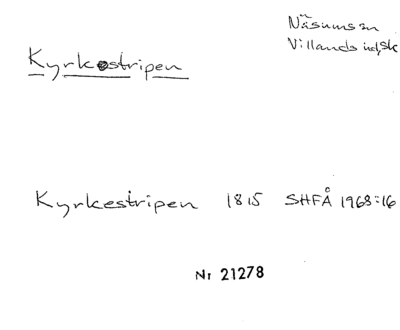 Näsums sn
Villands hd, Sk
Kyrkostripen
Kyrkestripen 1815 SHFÅ 1968:16
Nr 21278